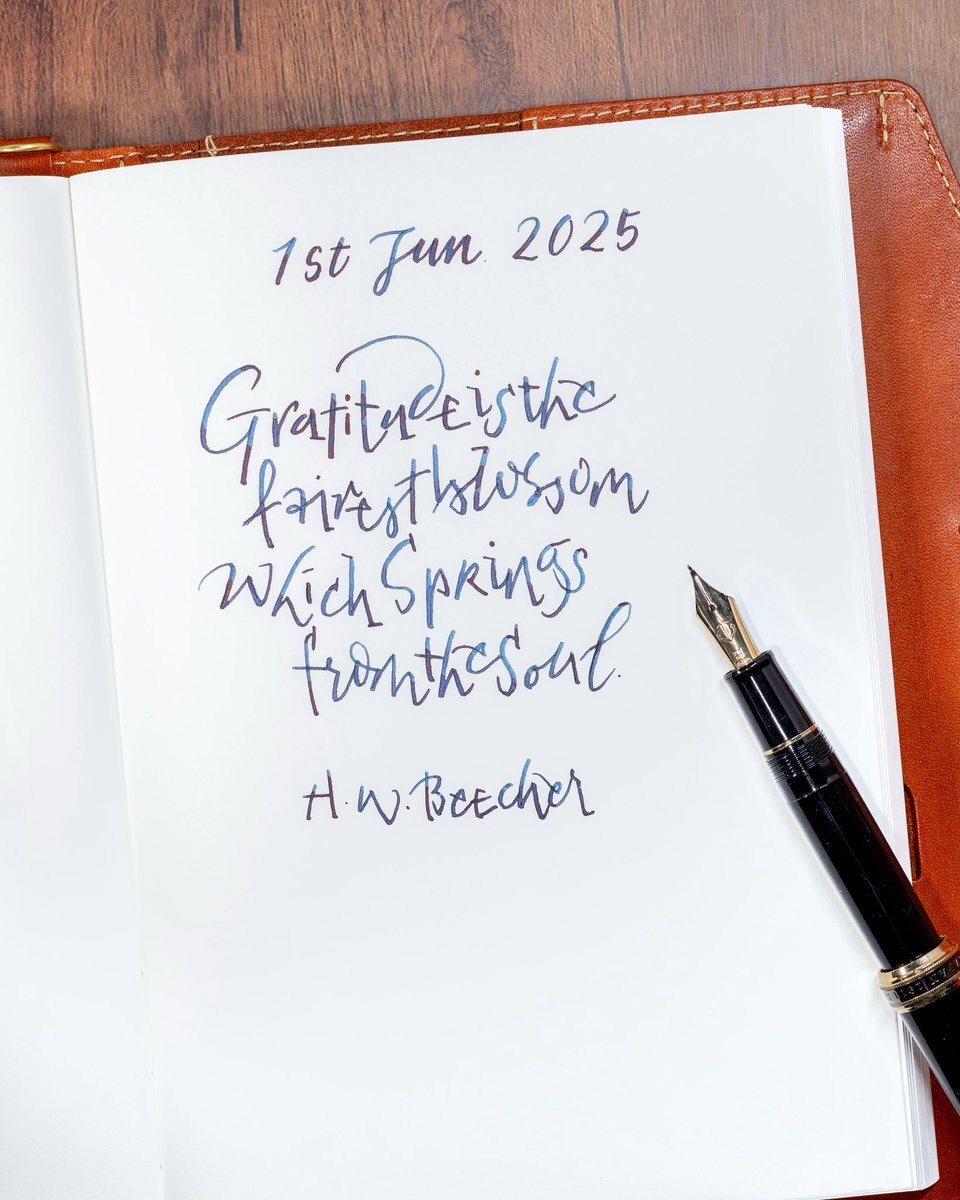 1st Jun. 2025
Gratitude is the
fairest blossom
which Springs
from the Soul.
H. W. Beecher